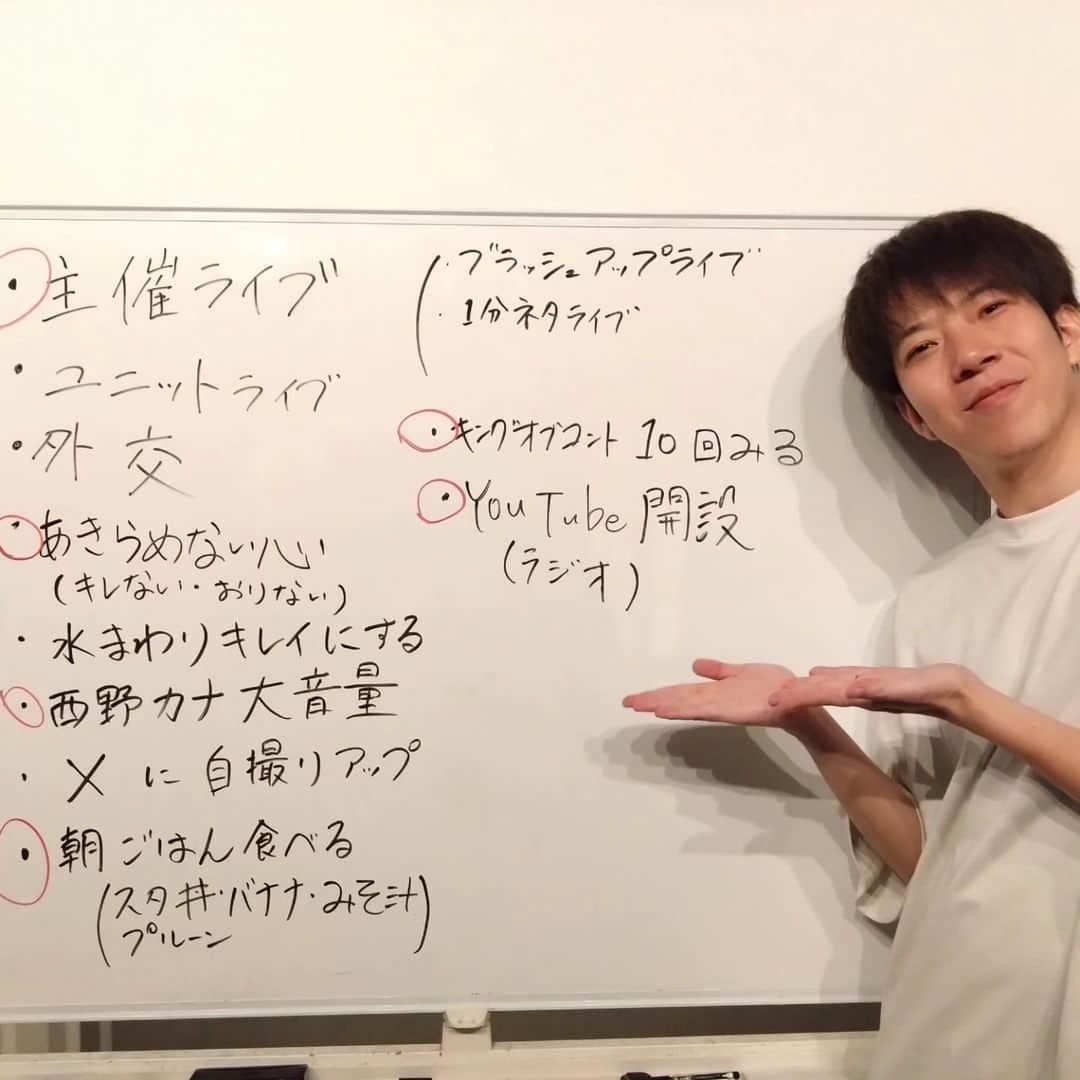 ・主催ライブ
・ユニットライブ
・外交
・あきらめない心
(キレない・おりない)
・水まわりキレイにする
・西野カナ大音量
・Xに自撮りアップ
・朝ごはん食べる
(スタ丼・バナナ・みそ汁
プルーン)
(・ブラッシュアップライブ
・1分ネタライブ
・キングオブコント10回みる
・YouTube開設
(ラジオ)